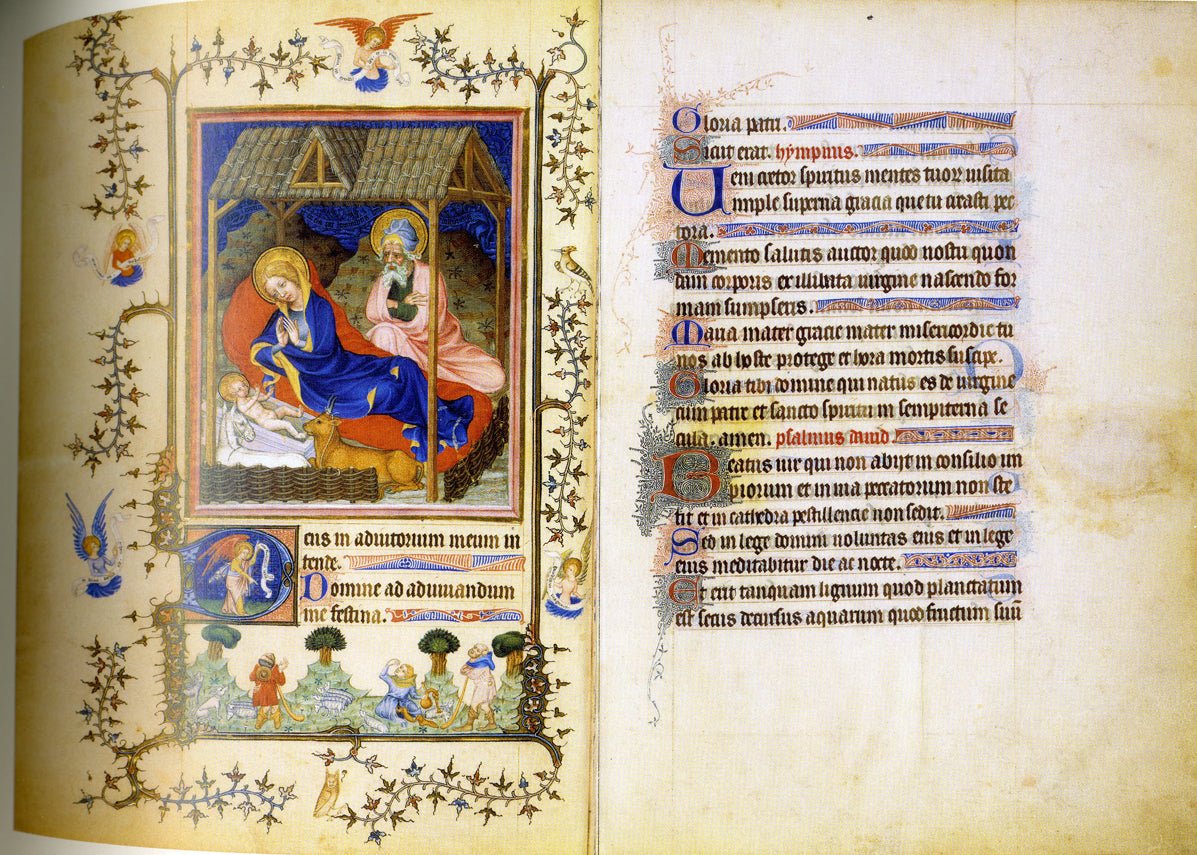 Deus in adiutorium meum in
tende.
Domine ad adiuuandum
me festina.
Gloria patri.
Sicut erat. hympnus.
Ueni creator spiritus mentes tuor uisita
imple superna gracia que tu creasti pec
tora.
Memento salutis auctor quod nostri quon
dam corporis ex illibata uirgine nascendo for
mam sumpseris.
Maria mater gracie mater misericordie tu
nos ab hoste protege et hora mortis suscipe.
Gloria tibi domine qui natus es de uirgine
cum patre et sancto spiritu in sempiterna se
cula. amen. psalmus dauid.
Beatus uir qui non abijt in consilio im
piorum et in uia peccatorum non ste
tit et in cathedra pestilencie non sedit.
Sed in lege domini uoluntas eius et in lege
eius meditabitur die ac nocte.
Et erit tanquam lignum quod plantatum
est secus decursus aquarum quod fructum suum